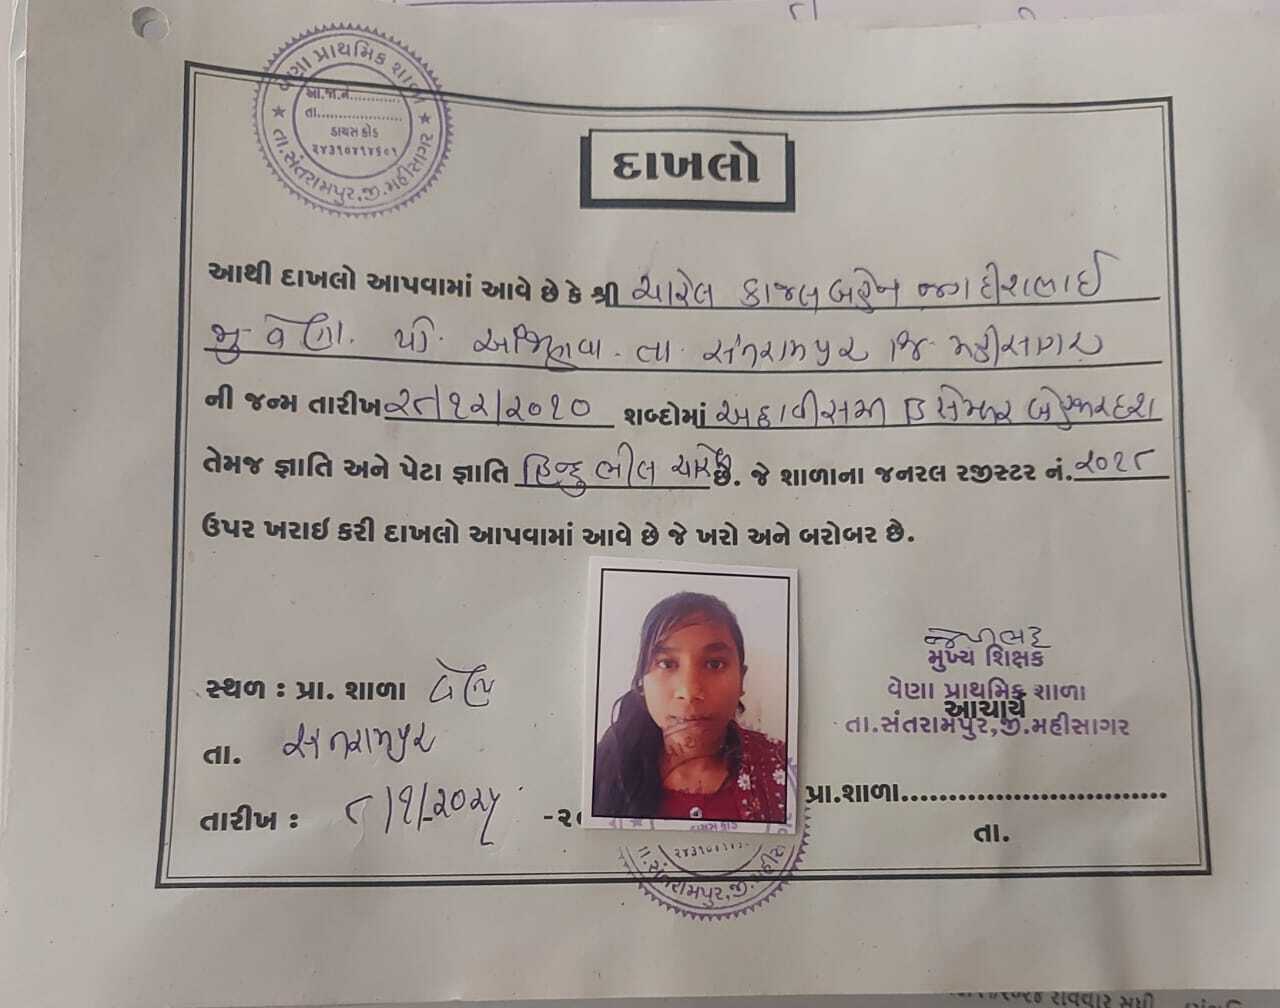 વેણા પ્રાથમિક શાળા
આ.જા.નં............
તા..................
ડાયસ કોડ
તા.સંતરામપુર,જી.મહીસાગર
દાખલો
આથી દાખલો આપવામાં આવે છે કે શ્રી ચારેલ કાજલબહેન જગદીશભાઈ
મુ- વેણા. પો. તા. સંતરામપુર જિ- મહીસાગર
ની જન્મ તારીખ ૨૮/૧૨/૨૦૧૦ શબ્દોમાં અઠ્ઠાવીસમી ડિસેમ્બર બે હજાર દશ
તેમજ જ્ઞાતિ અને પેટા જ્ઞાતિ હિન્દુ ભીલ ચારેલ છે. જે શાળાના જનરલ રજીસ્ટર નં. ૨૦૧૮
ઉપર ખરાઇ કરી દાખલો આપવામાં આવે છે જે ખરો અને બરોબર છે.
મુખ્ય શિક્ષક
સ્થળ : પ્રા. શાળા વેણા
વેણા પ્રાથમિક શાળા
આચાર્ય
તા.સંતરામપુર,જી.મહીસાગર
તા. સંતરામપુર
તારીખ : ૮/૧/૨૦૨૫ -૨૦
પ્રા.શાળા..............................
તા.
ડાયસ કોડ
તા.સંતરામપુર,જી.મહીસાગર